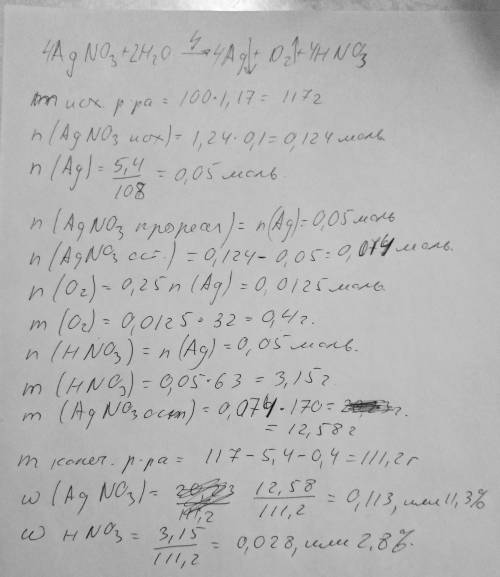 4AgNO3+2H2O →(ϟ) 4Ag↓+O2↑+4HNO3
m исх р-ра = 100·1,17 = 117г
n(AgNO3 исх) = 1,24·0,1 = 0,124 моль
n(Ag) = 5,4/108 = 0,05 моль.
n(AgNO3 прореаг) = n(Ag) = 0,05 моль
n(AgNO3 ост.) = 0,124 - 0,05 = 0,074 моль.
n(O2) = 0,25n(Ag) = 0,0125 моль.
m(O2) = 0,0125·32 = 0,4г.
n(HNO3) = n(Ag) = 0,05 моль.
m(HNO3) = 0,05·63 = 3,15г
m(AgNO3 ост) = 0,074·170 = г.
= 12,58г
m конеч. р-ра = 117 - 5,4 - 0,4 = 111,2г
w(AgNO3) = 12,58/111,2 = 0,113, или 11,3%
w HNO3 = 3,15/111,2 = 0,028, или 2,8%.